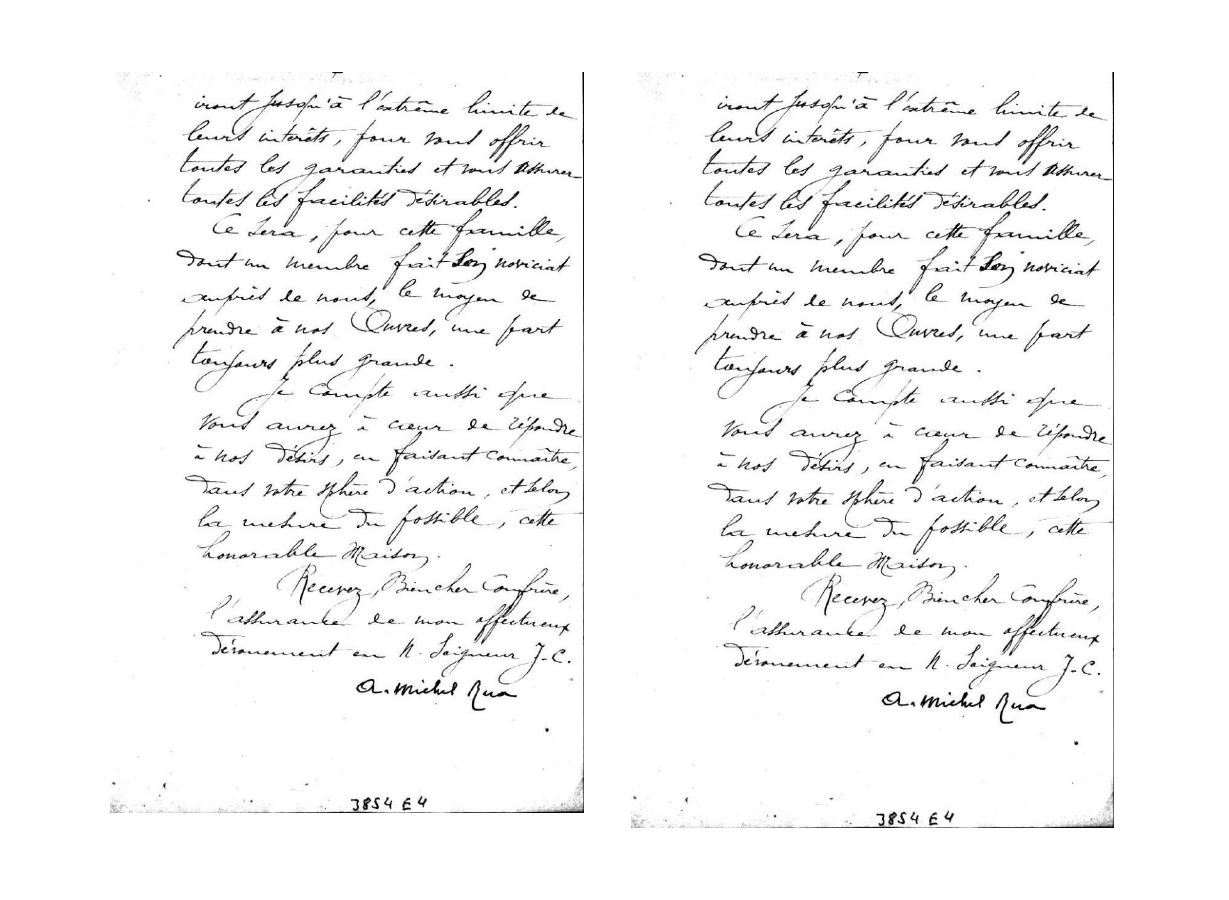 iront jusqu'à l'extrême limite de
leurs intérêts, pour vous offrir
toutes les garanties et vous assurer
toutes les facilités désirables.
Ce sera, pour cette famille,
dont un membre fait son noviciat
auprès de nous, le moyen de
prendre à nos Œuvres, une part
toujours plus grande.
Je compte aussi que
vous aurez à cœur de répondre
à nos désirs, en faisant connaître,
dans votre sphère d'action, et selon
la mesure du possible, cette
honorable Maison.
Recevez, Bien cher Confrère,
l'assurance de mon affectueux
dévouement en N. Seigneur J.-C.
a. Michel Rua
3854 E 4
iront jusqu'à l'extrême limite de
leurs intérêts, pour vous offrir
toutes les garanties et vous assurer
toutes les facilités désirables.
Ce sera, pour cette famille,
dont un membre fait son noviciat
auprès de nous, le moyen de
prendre à nos Œuvres, une part
toujours plus grande.
Je compte aussi que
vous aurez à cœur de répondre
à nos désirs, en faisant connaître,
dans votre sphère d'action, et selon
la mesure du possible, cette
honorable Maison.
Recevez, Bien cher Confrère,
l'assurance de mon affectueux
dévouement en N. Seigneur J.-C.
a. Michel Rua
3854 E 4